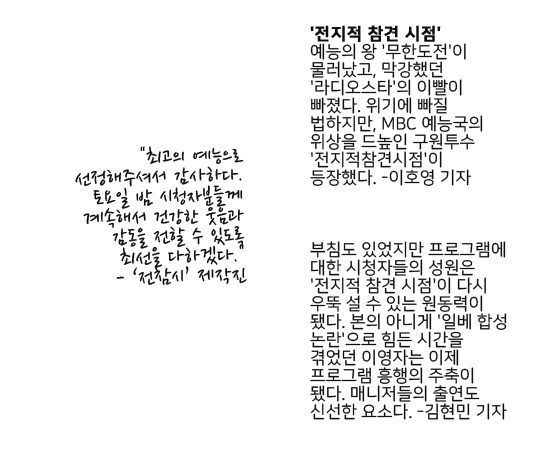 "최고의 예능으로
선정해주셔서 감사하다.
토요일 밤 시청자분들께
계속해서 건강한 웃음과
감동을 전할 수 있도록
최선을 다하겠다."
- '전참시' 제작진
'전지적 참견 시점'
예능의 왕 '무한도전'이
물러났고, 막강했던
'라디오스타'의 이빨이
빠졌다. 위기에 빠질
법하지만, MBC 예능국의
위상을 드높인 구원투수
'전지적참견시점'이
등장했다. -이호영 기자
부침도 있었지만 프로그램에
대한 시청자들의 성원은
'전지적 참견 시점'이 다시
우뚝 설 수 있는 원동력이
됐다. 본의 아니게 '일베 합성
논란'으로 힘든 시간을
겪었던 이영자는 이제
프로그램 흥행의 주축이
됐다. 매니저들의 출연도
신선한 요소다. -김현민 기자